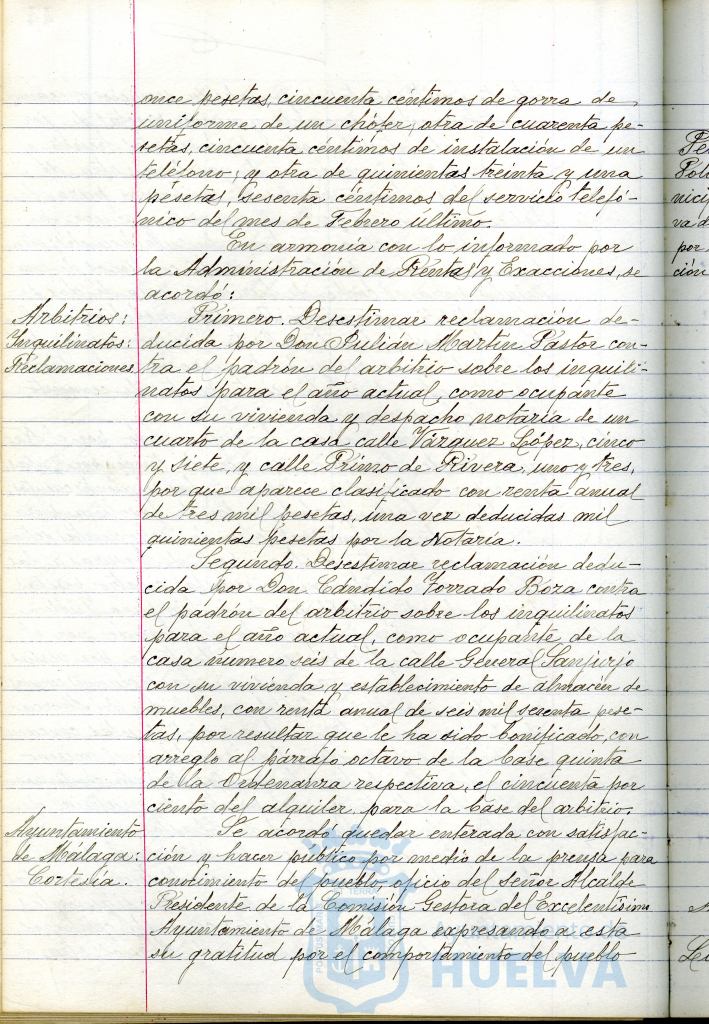 once pesetas, cincuenta céntimos de gorra de
uniforme de un chófer; otra de cuarenta pe-
setas, cincuenta céntimos de instalación de un
teléfono; y otra de quinientas treinta y una
pesetas, sesenta céntimos del servicio telefó-
nico del mes de Febrero último.
En armonía con lo informado por
la Administración de Rentas y Exacciones, se
acordó:
Arbitrios:
Inquilinatos:
Reclamaciones
Primero. Desestimar reclamación de-
ducida por Don Julián Martín Pastor con-
tra el padrón del arbitrio sobre los inquili-
natos para el año actual, como ocupante
con su vivienda y despacho notaría de un
cuarto de la casa calle Vázquez López, cinco
y siete, y calle Primo de Rivera, uno y tres,
por que aparece clasificado con renta anual
de tres mil pesetas, una vez deducidas mil
quinientas pesetas por la Notaría.
Segundo. Desestimar reclamación dedu-
cida por Don Cándido Torrado Boza contra
el padrón del arbitrio sobre los inquilinatos
para el año actual, como ocupante, de la
casa número seis de la calle General Sanjurjo
con su vivienda y establecimiento de almacén de
muebles, con renta anual de seis mil sesenta pese-
tas, por resultar que le ha sido bonificado, con
arreglo al párrafo octavo de la base quinta
de la Ordenanza respectiva, el cincuenta por
ciento del alquiler, para la base del arbitrio.
Ayuntamiento
de Málaga:
Cortesía.
Se acordó quedar enterada con satisfac-
ción y hacer público por medio de la prensa para
conocimiento del pueblo, oficio del señor Alcalde
Presidente de la Comisión Gestora del Excelentísimo
Ayuntamiento de Málaga expresando a esta
su gratitud por el comportamiento del pueblo
HUELVA
Pol
nici
va d
por
ción